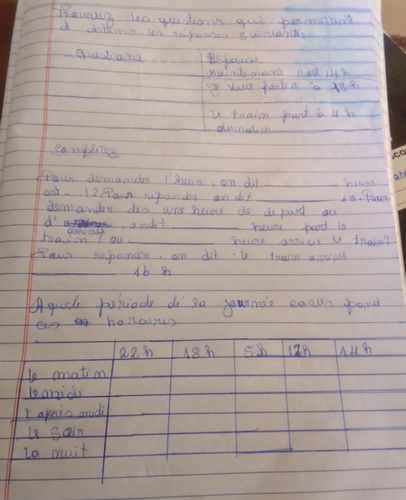 Trouvez les questions qui permettent
d'obtenir les réponses suivantes
Questions Réponse
maintenant il est 14h
je veux partir à 18h
Le train part à 4h
du matin
Completez
Pour demander l'heure, on dit heure
est - il? Pour repondre on dit 18. Pour
demander des une heure de depart ou
d'arrivée, on dit heure part le
train? ou heure arrive le train?
Pour repondre, on dit : le train arrive
16 h
A quelle période de la journée corres pond
ces horaires
22h 18h 5h 12h 14h
le matin
le midi
l'après midi
le soir
la nuit